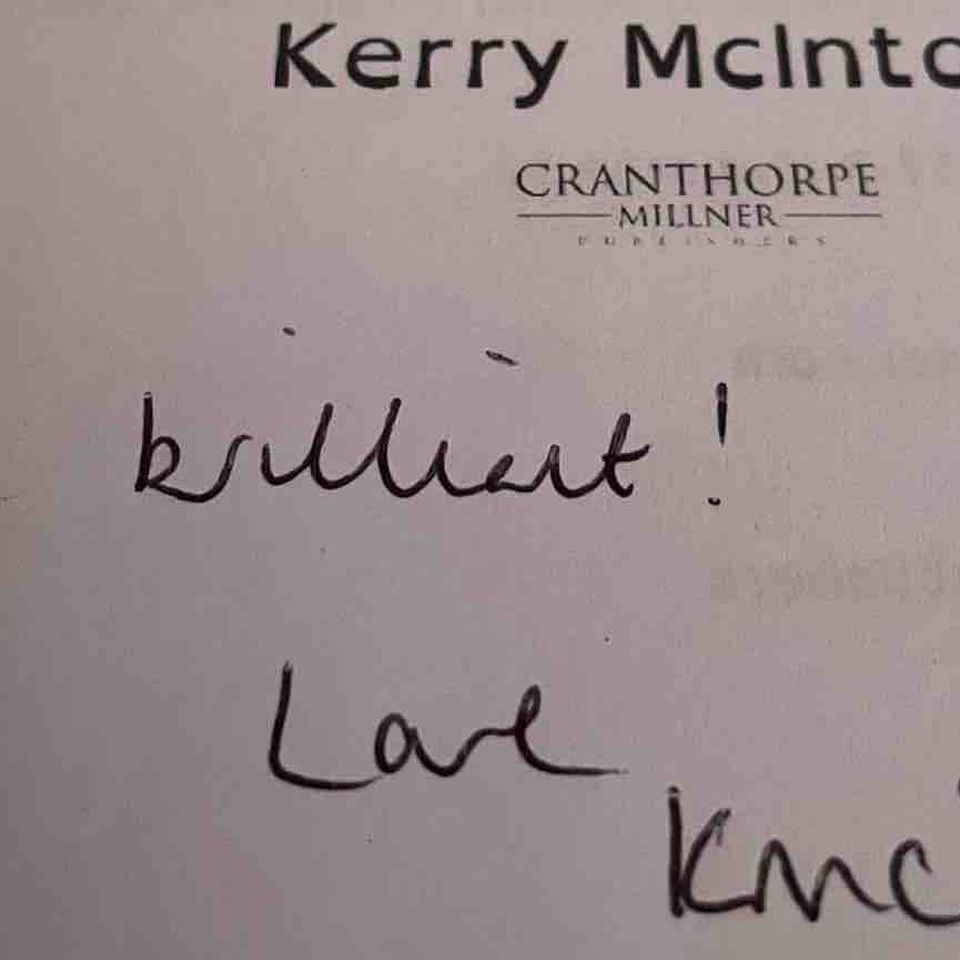 Kerry McInto
CRANTHORPE
MILLNER
PUBLISHERS
brilliant!
Love
KMc